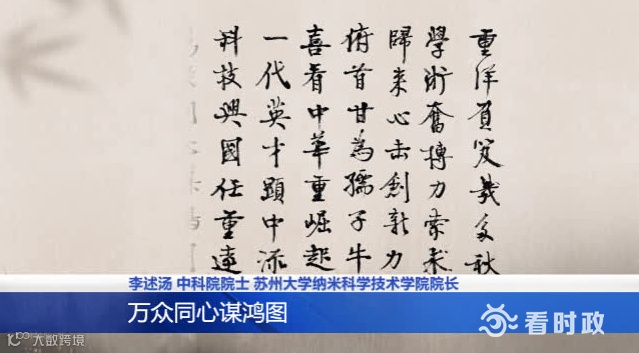 重洋負笈幾多秋
學術奮搏力索求
歸来心击創新力
俯首甘為孺子牛
喜看中華重崛起
一代英才顯中流
科技興國任重遠
李述汤 中科院院士 苏州大学纳米科学技术学院院长
万众同心谋鸿图
看时政
大数跨境